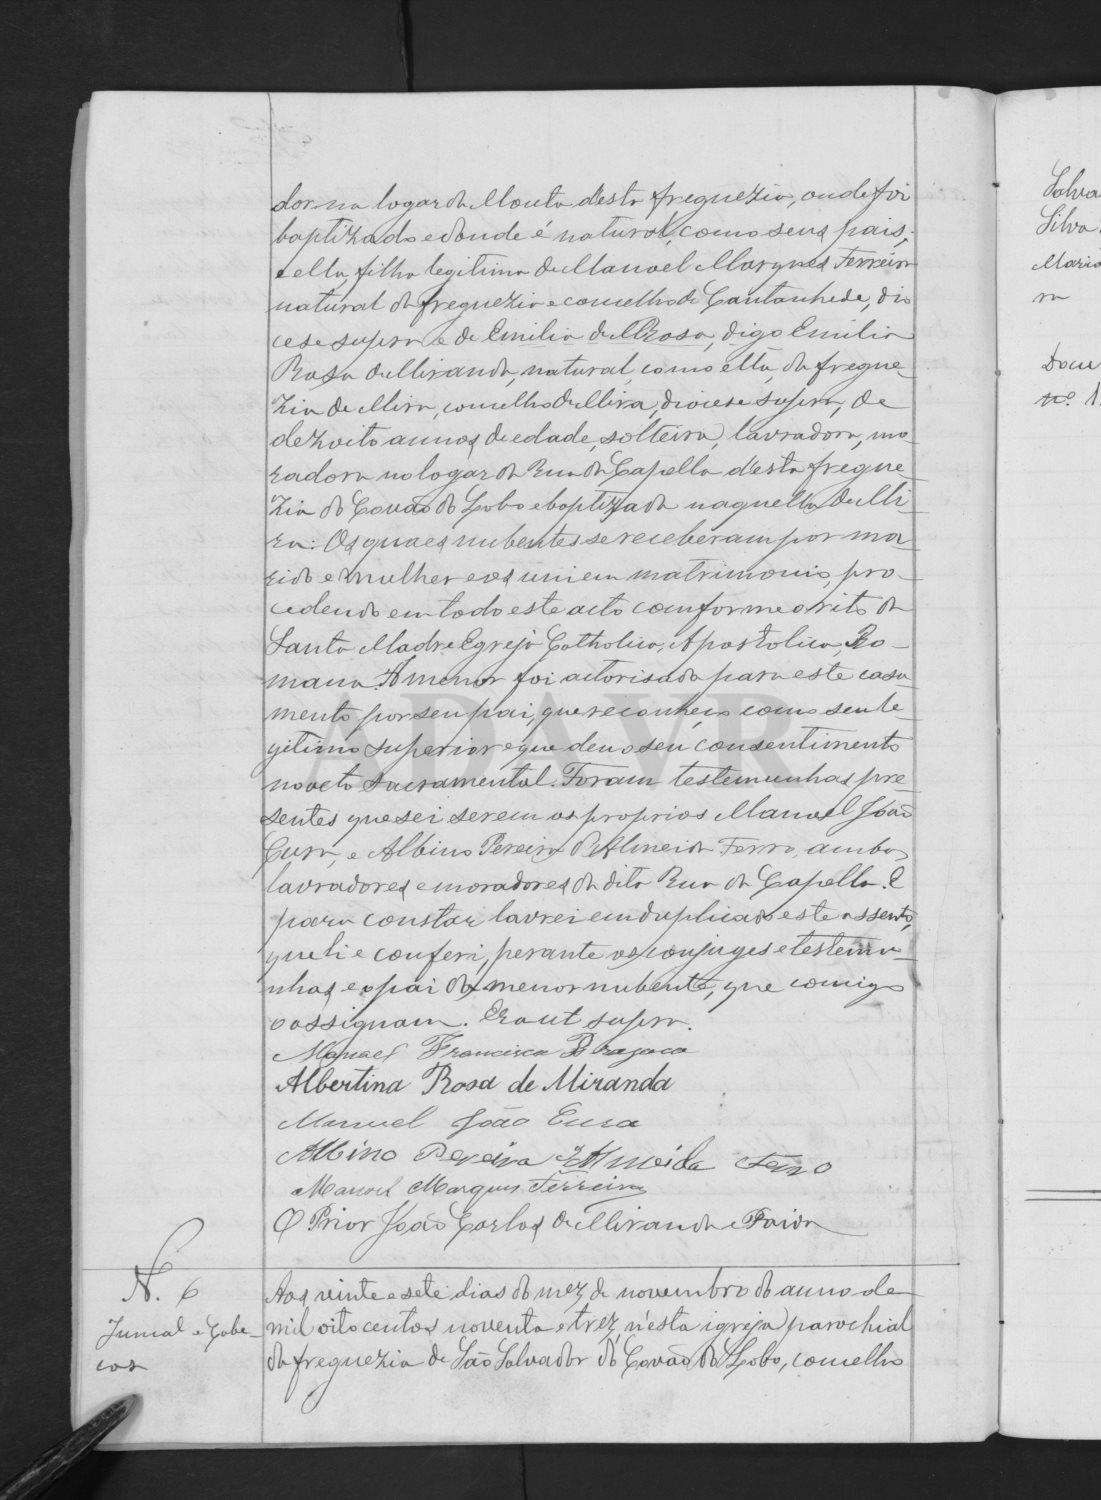 dor no logar da Mouta d'esta freguezia, onde foi
baptizado e donde é natural, como seus pais;
e ella, filha legitima de Manoel Marques Ferreira
natural da freguezia e concelho de Cantanhede, dio
cese supra e de Emilia de Rosa, digo Emilia
Rosa de Miranda, natural, como ella, da fregue-
zia de Mira, concelho de Mira, diocese supra, de
dezoito annos de edade, solteira, lavradora, mo-
radora no logar da Rua da Capella d'esta fregue-
zia do Covão do Lobo e baptizada naquella de Mi-
ra: Os quaes nubentes se receberam por ma-
rido e mulher e os uni em matrimonio, pro-
cedendo em todo este acto conforme o rito da
Santa Madre Egreja Catholica, Apostolica, Ro-
mana. A menor foi actorisada para este casa-
mento por seu pai, que reconheço como seu le-
gitimo superior e que deu o seu consentimento
no acto sacramental. Foram testemunhas pre-
sentes que sei serem os proprios Manoel João
Cura, e Albino Pereira d'Almeida Ferro, ambos
lavradores e moradores da dita Rua da Capella. E
para constar lavrei em duplicado este assento,
que li e conferi, perante os conjuges e testemu-
nhas e o pai da menor nubente, que comigo
o assignam. Era ut supra.
Manuel Francisco
Albertina Rosa de Miranda
Manuel João Cura
Albino Pereira d'Almeida Ferro
Manoel Marques Ferreira
O Prior João Carlos de Miranda e Faida
N. 6
Juncal e Cabe-
cas
Aos vinte e sete dias do mez de novembro do anno de
mil oitocentos noventa e trez, n'esta igreja parochial
da freguezia de São Salvador do Covão do Lobo, concelho
Salva
Silva
Maria
ra
Docu
nº 1
ADAVR